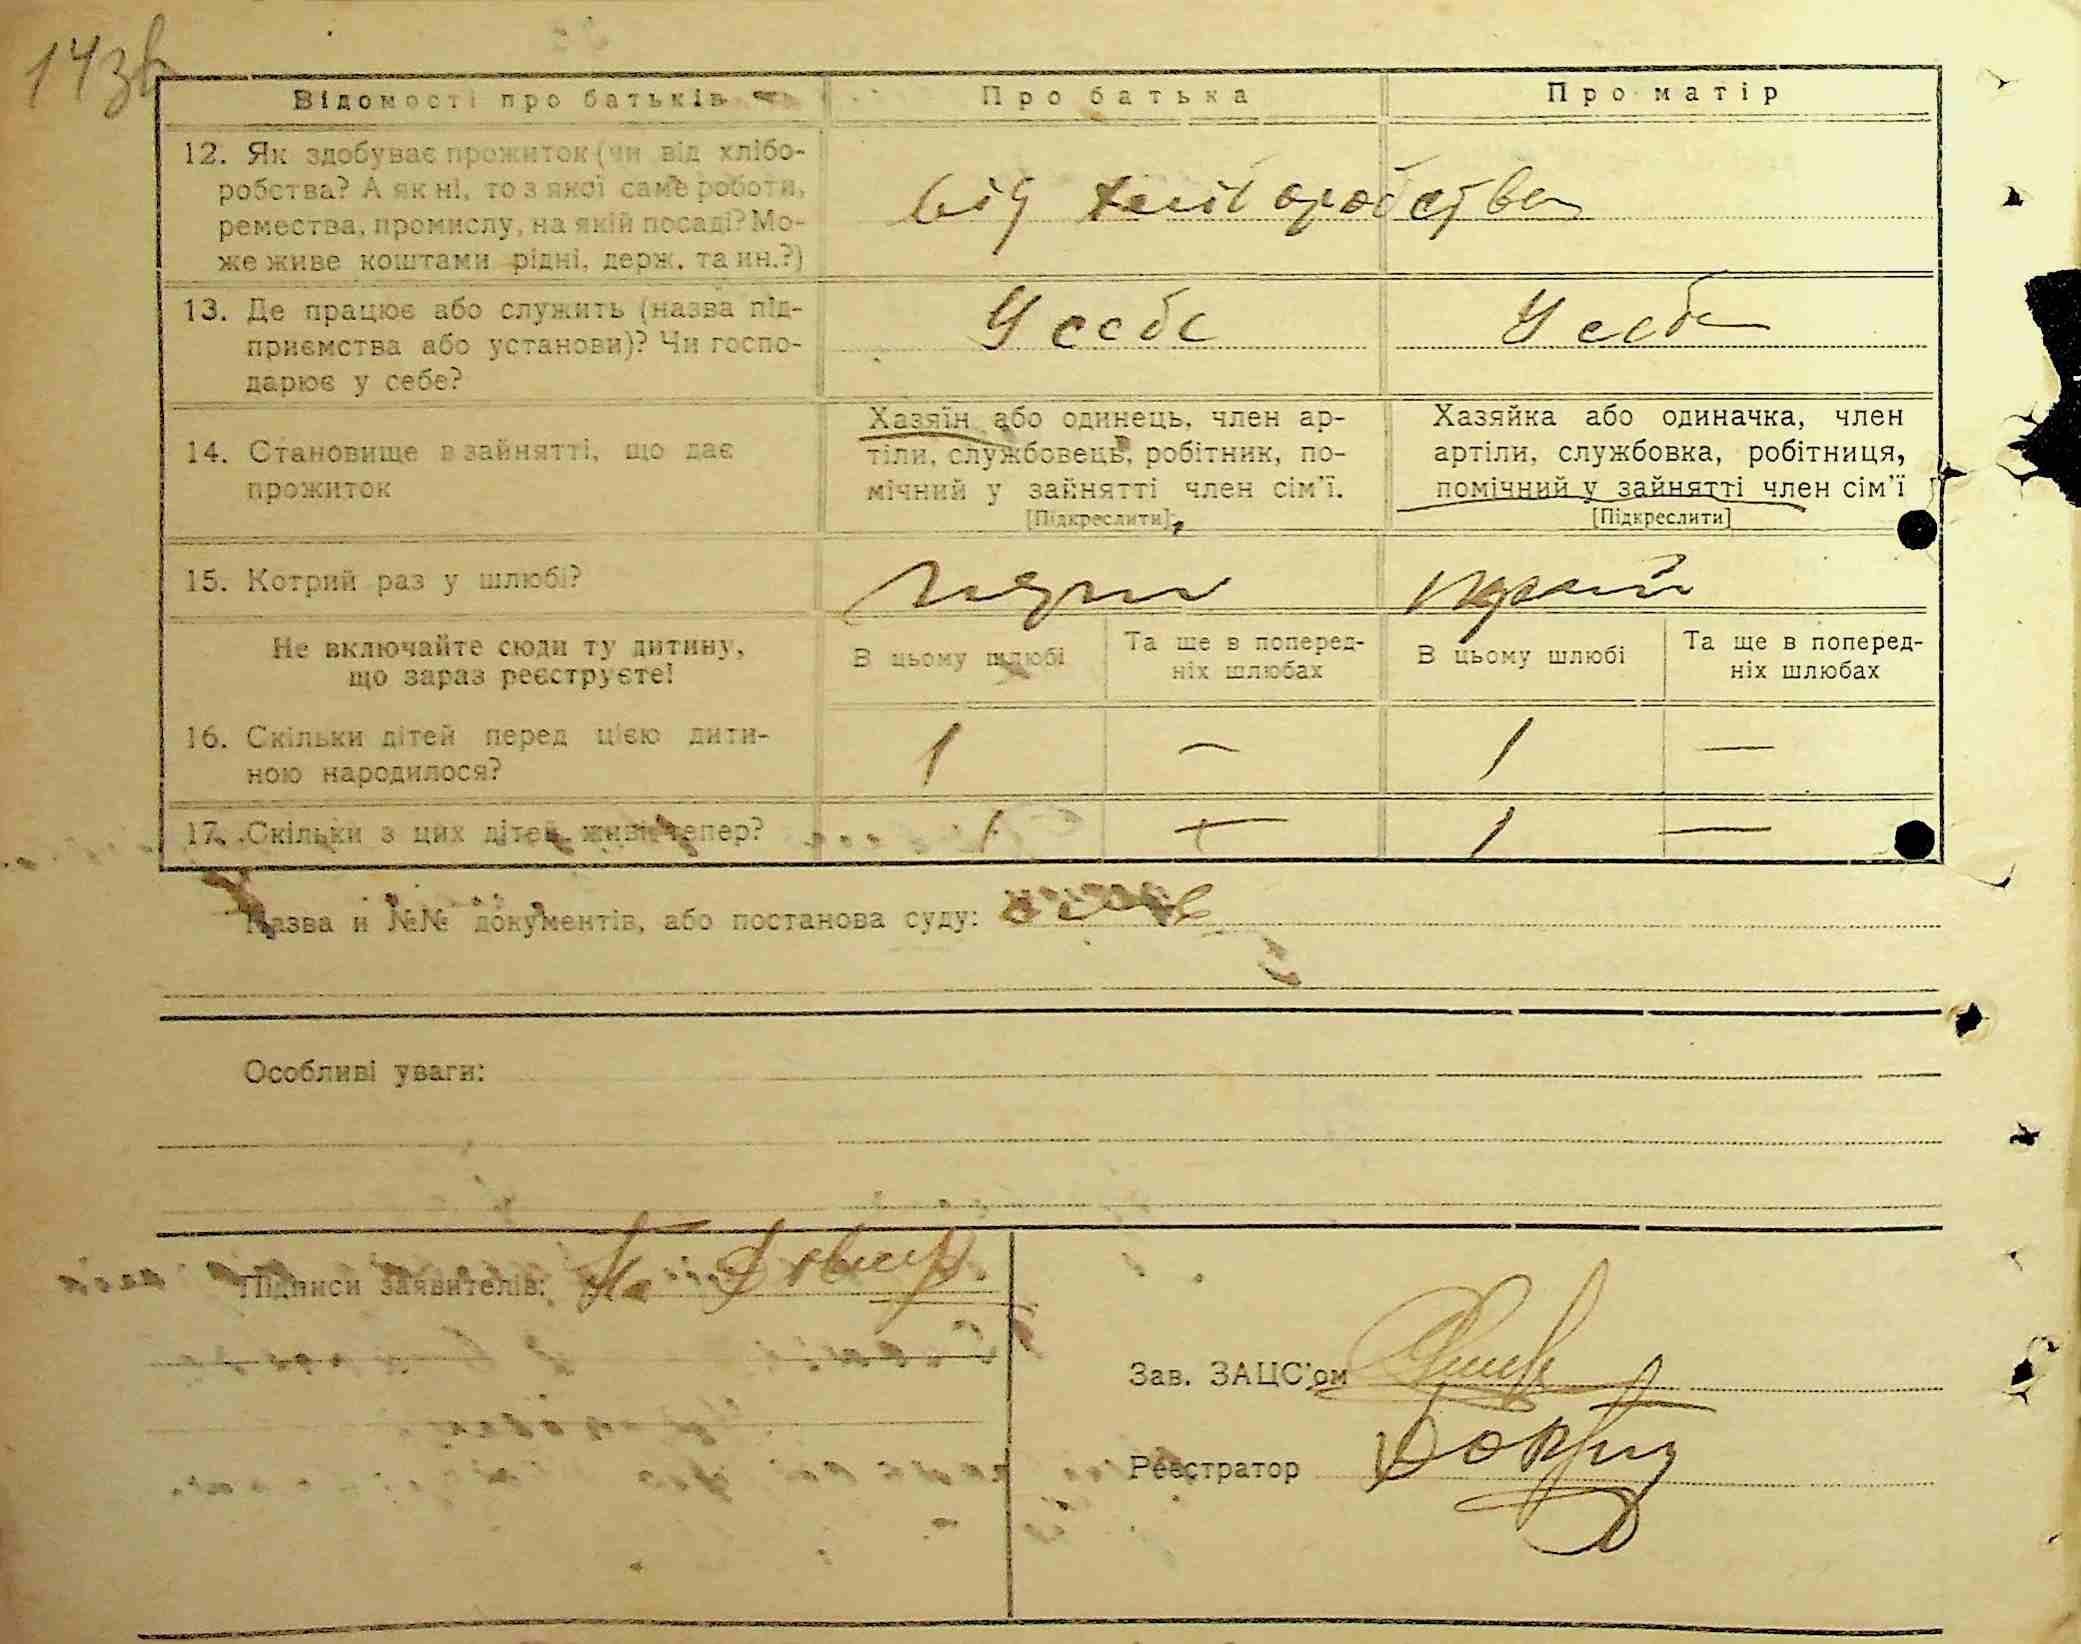 14зв
Відомості про батьків
Про батька
Про матір
12. Як здобуває прожиток (чи від хлібо-
робства? А як ні, то з якої саме роботи,
ремества, промислу, на якій посаді? Мо-
же живе коштами рідні, держ. та ин.?)
від хліборобства
13. Де працює або служить (назва під-
приємства або установи)? Чи госпо-
дарює у себе?
У себе
У себе
14. Становище в зайнятті, що дає
прожиток
Хазяїн або одинець, член ар-
тіли, службовець, робітник, по-
мічний у зайнятті член сім'ї.
[Підкреслити]
Хазяйка або одиначка, член
артіли, службовка, робітниця,
помічний у зайнятті член сім'ї
[Підкреслити]
15. Котрий раз у шлюбі?
Не включайте сюди ту дитину,
що зараз реєструєте!
В цьому шлюбі
Та ще в поперед-
ніх шлюбах
В цьому шлюбі
Та ще в поперед-
ніх шлюбах
16. Скільки дітей перед цією дити-
ною народилося?
1 — 1 —
17. Скільки з цих дітей живі тепер?
1 — 1 —
Назва и №№ документів, або постанова суду:
Особливі уваги:
Підписи заявителів:
Зав. ЗАЦС'ом
Реєстратор